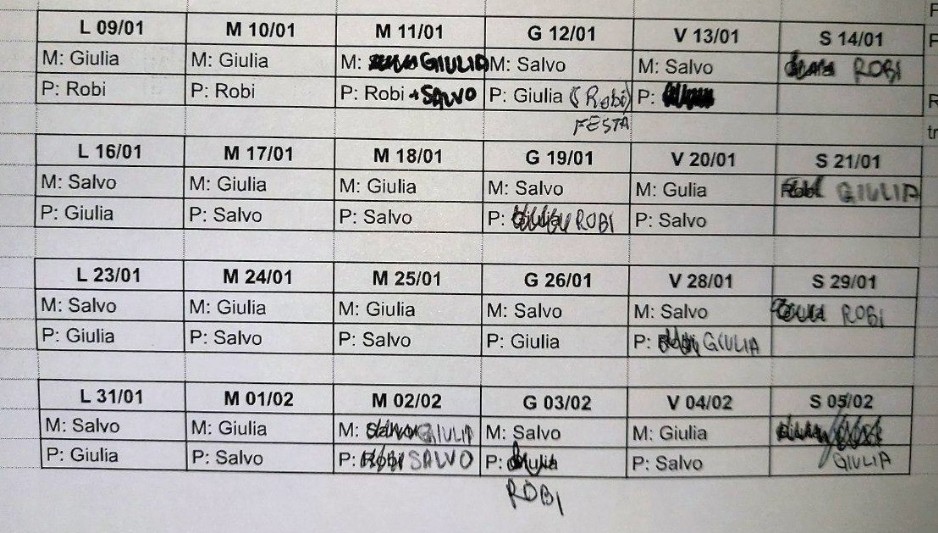 L 09/01 M 10/01 M 11/01 G 12/01 V 13/01 S 14/01
M: Giulia M: Giulia M: GIULIA M: Salvo M: Salvo ROBI
P: Robi P: Robi P: Robi + SALVO P: Giulia (Robi) P:
FESTA
L 16/01 M 17/01 M 18/01 G 19/01 V 20/01 S 21/01
M: Salvo M: Giulia M: Giulia M: Salvo M: Gulia Robi GIULIA
P: Giulia P: Salvo P: Salvo P: Giulia ROBI P: Salvo
L 23/01 M 24/01 M 25/01 G 26/01 V 28/01 S 29/01
M: Salvo M: Giulia M: Giulia M: Salvo M: Salvo ROBI
P: Giulia P: Salvo P: Salvo P: Giulia P: GIULIA
L 31/01 M 01/02 M 02/02 G 03/02 V 04/02 S 05/02
M: Salvo M: Giulia M: Salvo GIULIA M: Salvo M: Giulia
P: Giulia P: Salvo P: Robi SALVO P: Giulia P: Salvo GIULIA
ROBI